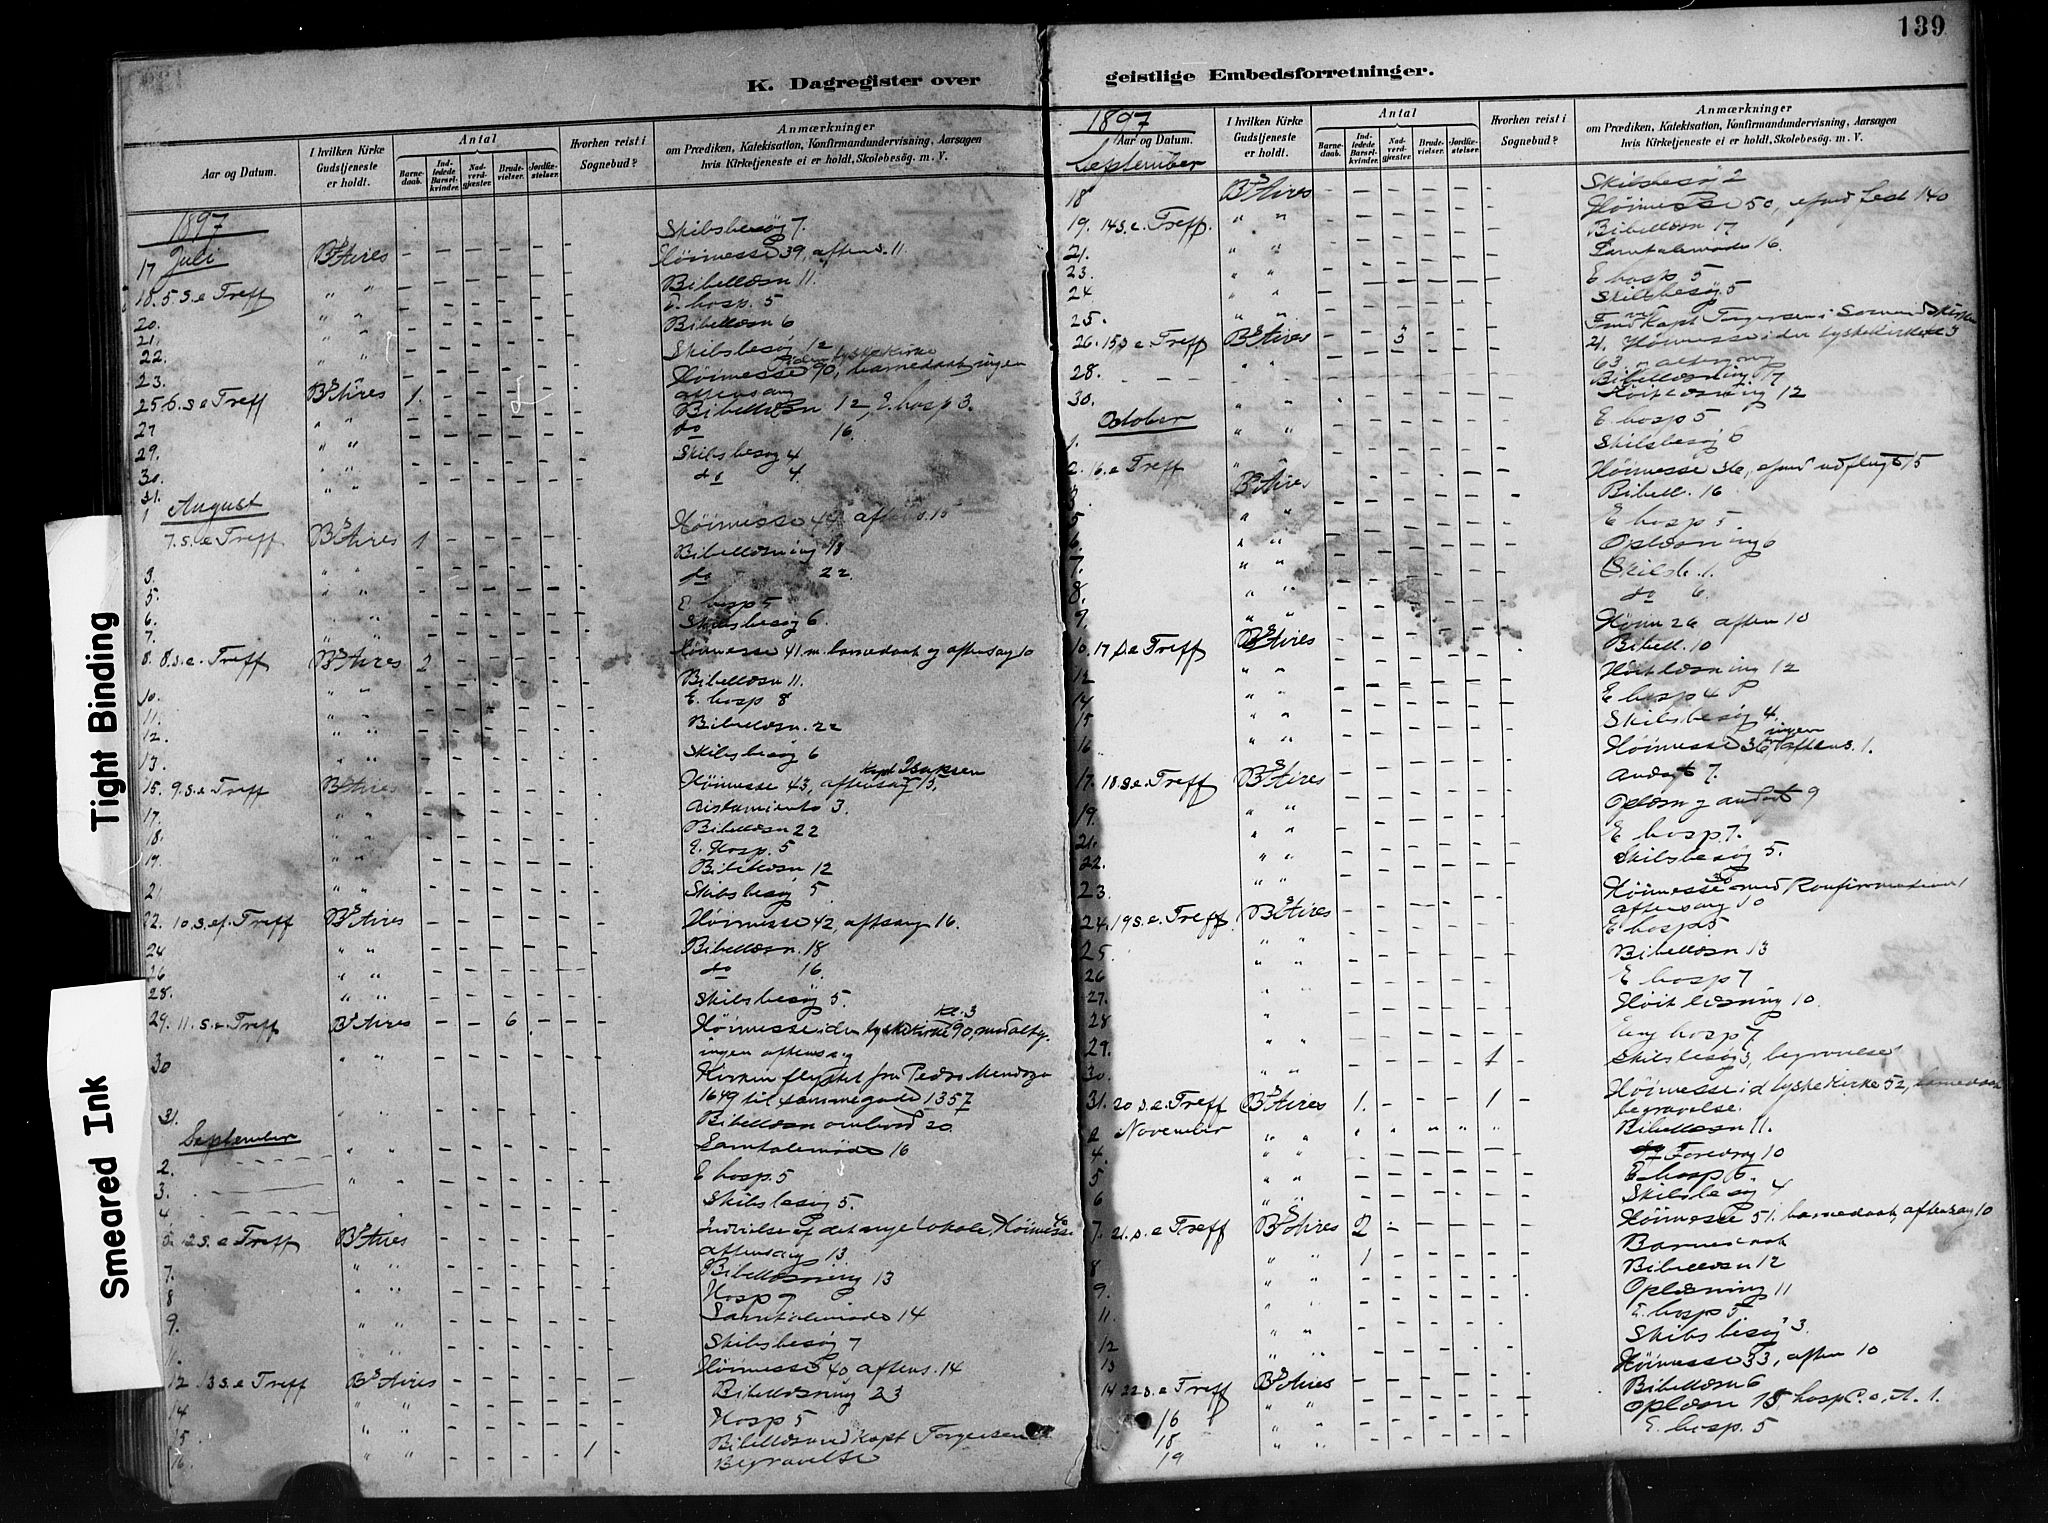 139
K. Dagregister over
geistlige Embedsforretninger.
Tight Binding
Smeared Ink
Aar og Datum.
I hvilken Kirke Gudstjeneste er holdt.
Antal
Barnedaab.
Indledede Barselkvinder.
Nadverdgjæster
Brudevielser.
Jordfæstelser.
Hvorhen reist i Sognebud?
Anmærkninger
om Prædiken, Katekisation, Konfirmandundervisning, Aarsagen
hvis Kirketjeneste ei er holdt, Skolebesøg. m. V.
1897
Juli
17 Bs Aires Skibsbesøg 7.
18. 5. s. e Treff " " Høimesse 39, aftens. 11
20. " " Bibellæsn 11.
21. E. hosp. 5
22. " " Bibellæsn 6
23. Skibsbesøg 12
25 6. s. e Treff Bs Aires 1. Høimesse 90, barnedaab, ingen
aftensang
27 " " Bibellæsn 12, E. hosp 3.
29. " " do 16.
30. Skibsbesøg 4
31. " " do 4.
August
1 7. s. e Treff Bs Aires 1 Høimesse 44 aftens. 15
3. " " Bibellæsning 18
5. " " do 22.
6. E hosp 5
7. " " Skibsbesøg 6.
8. 8. s. e. Treff Bs Aires 2 Høimesse 41. m. barnedaab og aftensag 10
10. " " Bibellæsn 11.
11. " " E. hosp 8
12. " " Bibellæsn. 22
13. " " Skibsbesøg 6
15. 9. s. e Treff Bs Aires Høimesse 43, aftensag 13, Kapt Isaksen
17. " " Bistamiento 3.
18. " " Bibellæsn 22
19. " " E. Hosp. 5
Bibellæsn 12
21 " " Skibsbesøg 5
22. 10. s. ef. Treff Bs Aires Høimesse 42, aftsag 16.
24 " " Bibellæsn. 18
26 " " do 16.
28. " " Skibsbesøg 5.
29. 11. s. e Treff Bs Aires 6 Høimesse i den tyske Kirke Kl. 3 90, med altg.
ingen aftensag
30 " " Kirken flyttet fra Pedro Mendoza
1649 til samme gade 1357
31. Bibellæsn ombord 20
September
2. " " Samtalemøde 16
3. " " E hosp. 5
4 Skibsbesøg 5.
5. 12 s. e Treff Bs Aires Indvielse af det nye lokale, Høimesse 40
aftensag 13
7. " " Bibellæsning 13
8 " " Hosp 7
9. " " Samtalemøde 14
11. " " Skibsbesøg 7
12 13 s. e Treff Bs Aires Høimesse 40, aftens. 14
14 " " Bibellæsning 23
15 " " Hosp 5
16 " " 1 Bibellæs ved Kapt Torgersen
Begravelse
1897
Aar og Datum.
I hvilken Kirke Gudstjeneste er holdt.
Antal
Barnedaab.
Indledede Barselkvinder.
Nadverdgjæster
Brudevielser.
Jordfæstelser.
Hvorhen reist i Sognebud?
Anmærkninger
om Prædiken, Katekisation, Konfirmandundervisning, Aarsagen
hvis Kirketjeneste ei er holdt, Skolebesøg. m. V.
September
18 Bs Aires Skibsbesøg 2
19. 14 s. e. Treff. " " Høimesse 50, efmd fest 140
21. " " Bibellæsn 17
23. " " Samtalemøde 16.
24 " " E hosp 5
25. " " Skibsbesøg 5
26. 15 s e Treff Bs Aires 3
21. Høimesse i den tyske Kirke kl 3
63.
28. " " Bibellæsning 17
30. " " Høitlæsning 12
October
1. " " E. hosp 5
2. " Skibsbesøg 6
3 16. e Treff Bs Aires Høimesse 36, efmd udflugt 15
5 " " Bibell. 16
6 " " E hosp 5.
7. " " Oplæsning
8. " " Skibsb. 1.
9 " " do 6.
10. 17 s. e Treff Bs Aires Høim 26 aften 10
12 " " Bibell. 10
14 " " Høitlæsning 12
15 " " E hosp 4
16 " " Skibsbesøg 4.
17. 18 s. e Treff Bs Aires Høimesse 36, ingen aftens. 1.
19. " " Andagt 7.
21. " " Oplæsn og andagt 9
22. " " E hosp 7.
23. " " Skibsbesøg 5.
24. 19 s. e. Treff Bs Aires Høimesse med Konfirmation
aftensag 10
25. " " E hosp 5
26 " " Bibellæsn 13
27. " " E hosp 7
28 " " Høitlæsning 10.
29. " " Eng hosp 7
30. " " 1 Skibsbesøg 3, begravelse
31. 20 s. e. Treff Bs Aires 1. 1 Høimesse i d tyske Kirke 52, barnedaab
begravelse.
November
2 " " Bibellæsn 11.
4. " " Foredrag 10
5 " " E hosp 6.
6 " " Skibsbesøg 4
7. 21. s. e Treff Bs Aires 2 Høimesse 51. barnedaab, aftensag 10
8 " " 1 Barnedaab
9. " " Bibellæsn 12
11. " " Oplæsning 11
12 " " E. hosp 5
13 " " Skibsbesøg 3.
14 22 s. e Treff Bs Aires Høimesse 33, aften 10
16 " " Bibellæsn 6
18 " " Oplæsn 15, hosp C. o. A. 1.
19 " " E. hosp. 5